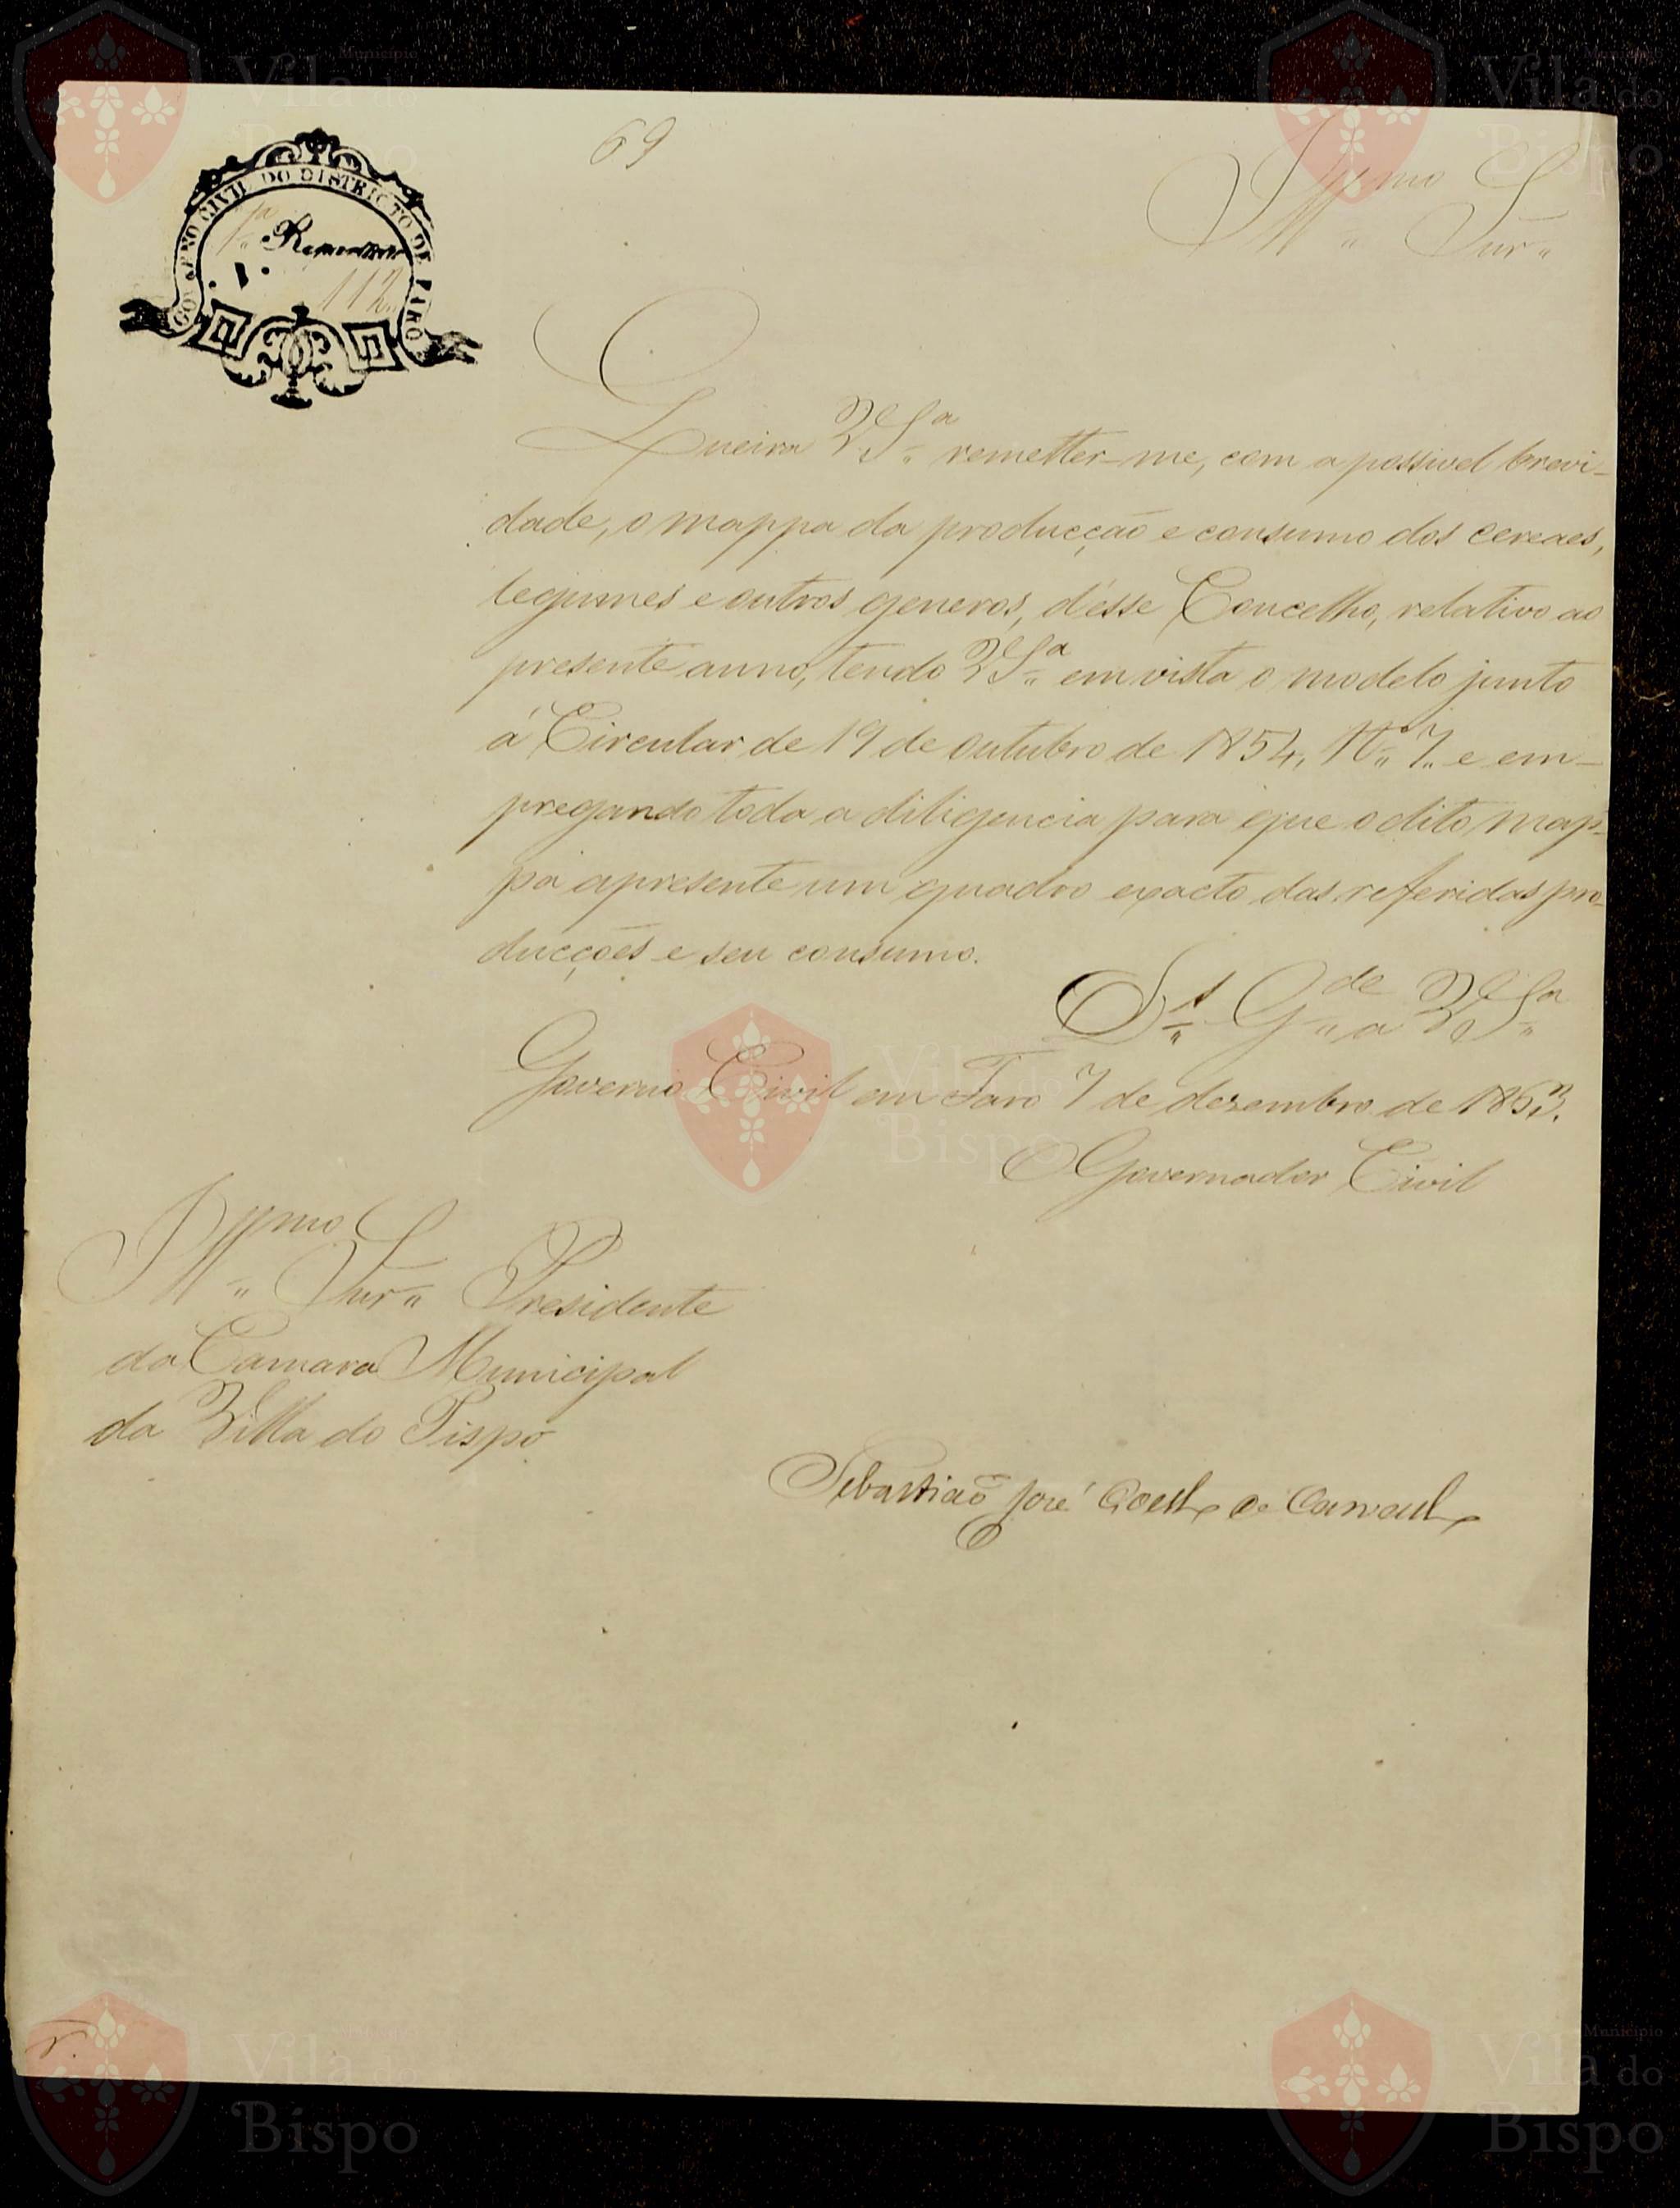 69
GOVERNO CIVIL DO DISTRICTO DE FARO
1.ª Repartição
N.º 112
Ill.mo Snr.
Queira V S.ª remetter-me, com a possivel brevi-
dade, o mappa da producção e consumo dos cereaes,
legumes e outros generos, d'ésse Concelho, relativo ao
presente anno, tendo V S.ª em vista o modelo junto
á Circular de 19 de outubro de 1854, N.º 7 e em-
pregando toda a diligencia para que o dito map-
pa apresente um quadro exacto das referidas pro-
ducções e seu consumo.
D.s G.de a V S.ª
Governo Civil em Faro 7 de dezembro de 1863.
O Governador Civil
Ill.mo Snr. Presidente
da Camara Municipal
da Villa do Bispo
Sebastião José Coelho de Carvalho
Município
Vila do
Bispo